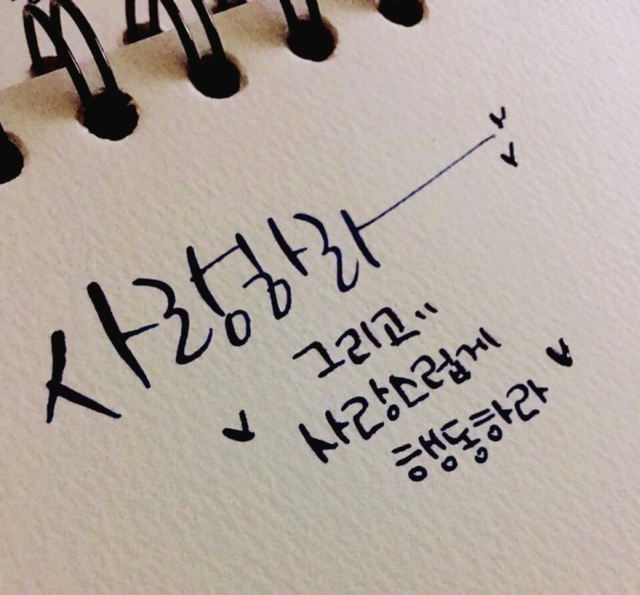 사랑하라
그리고..
사랑스럽게
행동하라